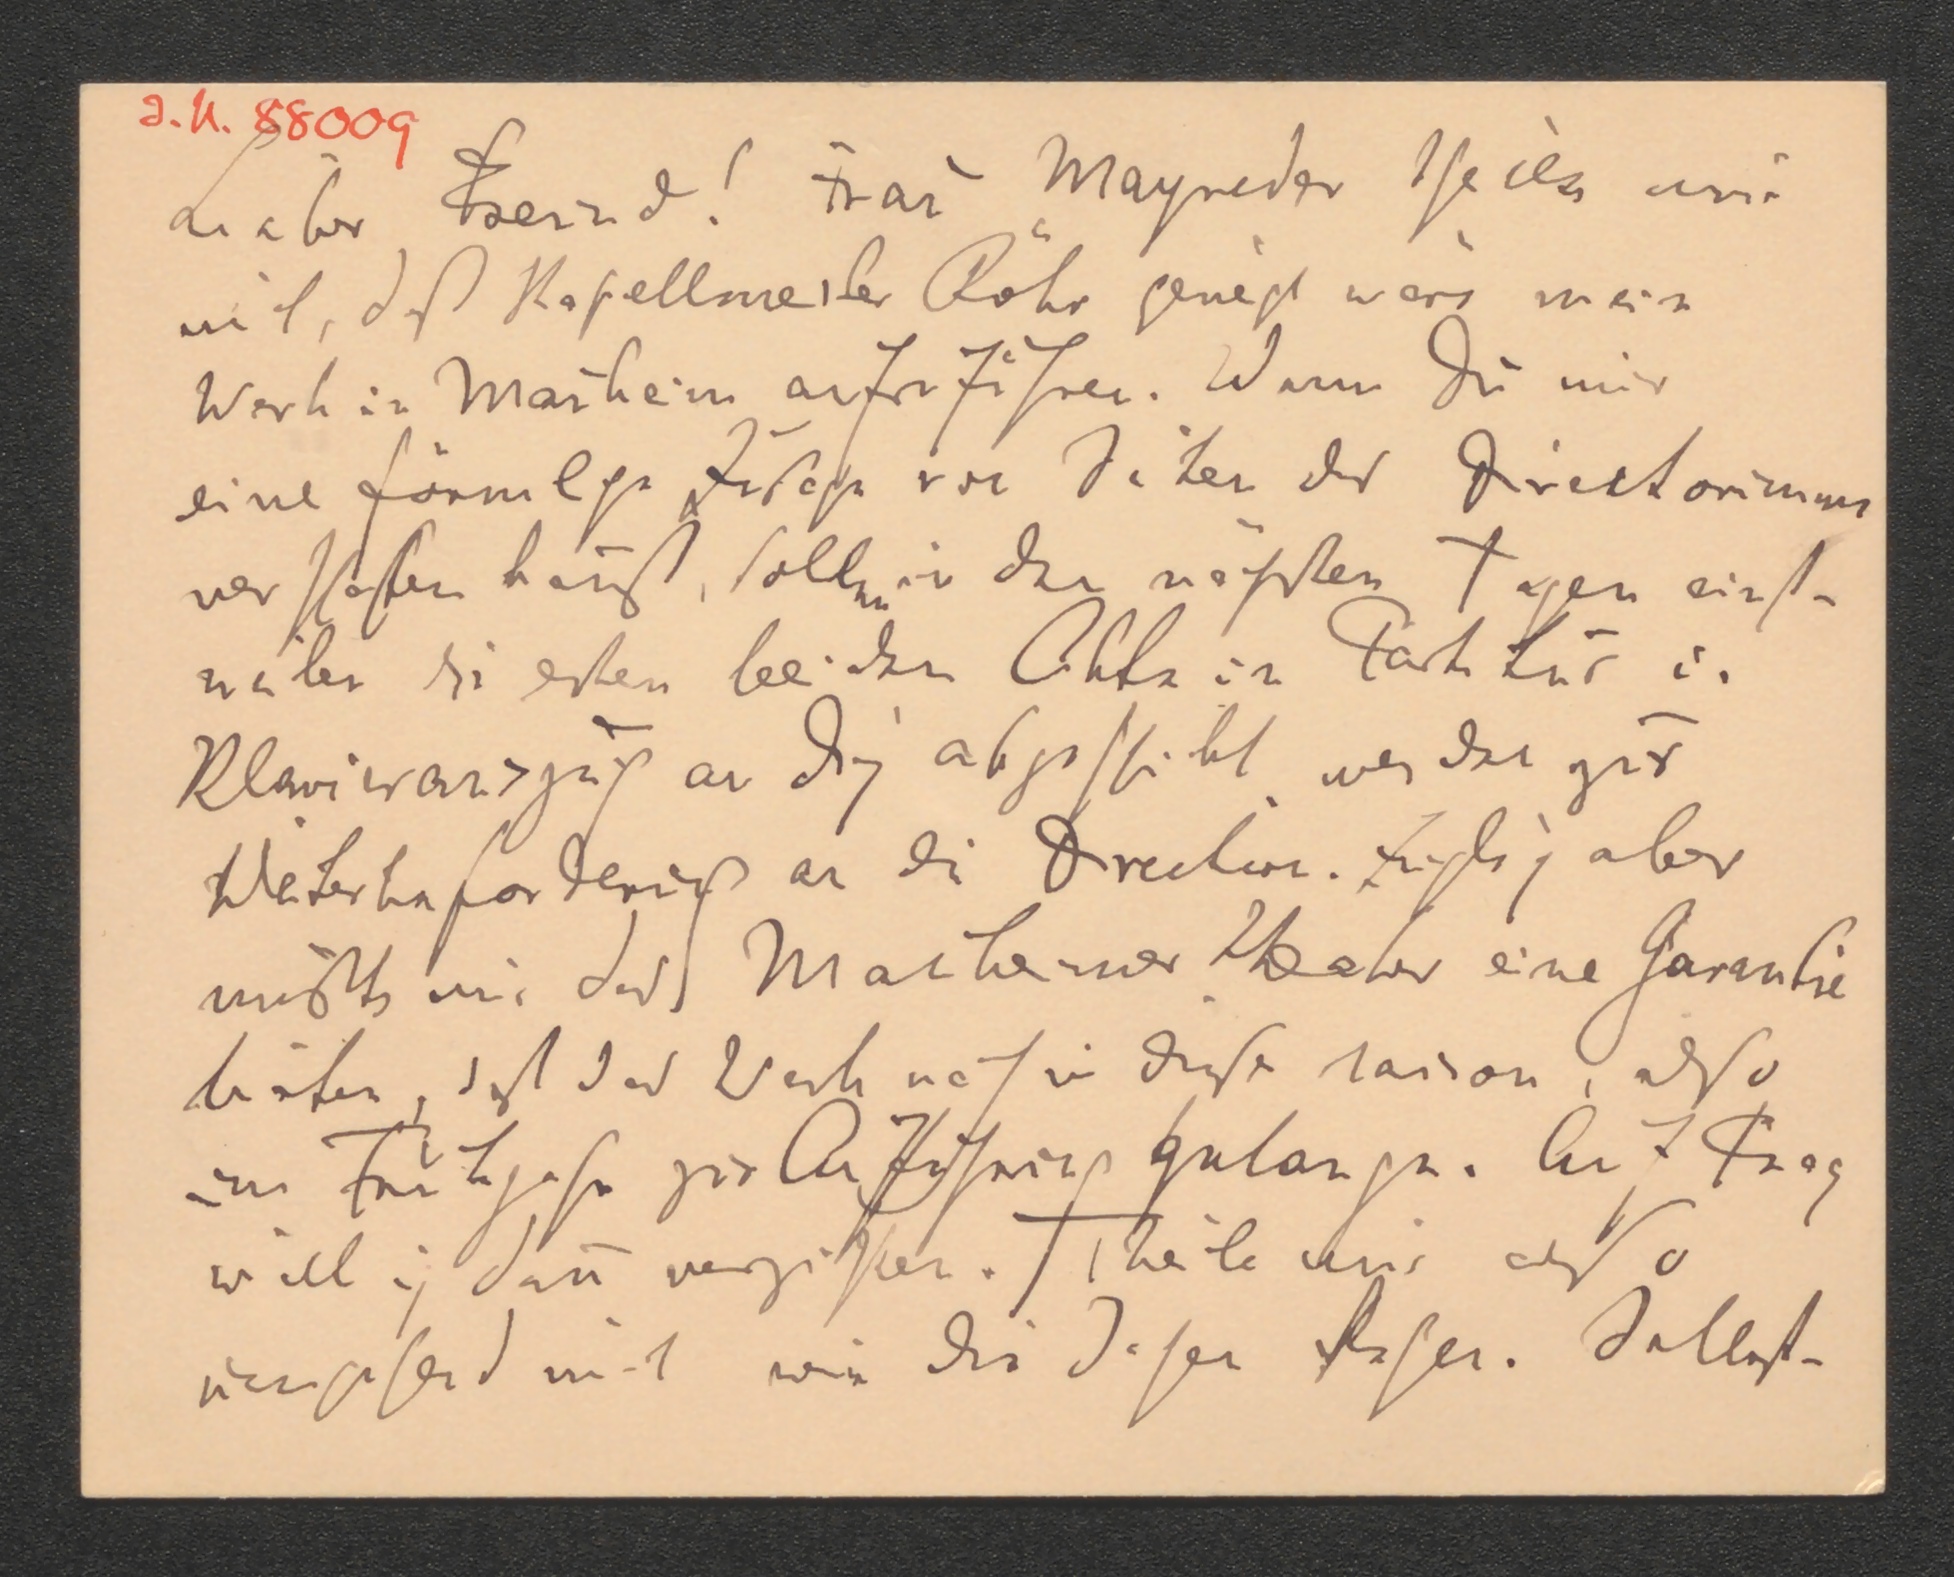 J.N. 88009
Lieber Freund! Frau Mayreder theilte mir
mit, daß Kapellmeister Röhr geneigt wäre mein
Werk in Manheim aufzuführen. Wenn Du mir
eine förmliche Zusage von Seiten des Directoriums
verschaffen kannst, sollen in den nächsten Tagen einst-
weilen die ersten beiden Akte in Partitur u.
Klavierauszug an Dich abgeschickt werden zur
Weiterbeförderung an die Direction. Zugleich aber
müßte mir das Manheimer Theater eine Garantie
bieten, daß das Werk noch in dieser saison, also
im Frühjahr zur Aufführung gelange. Auf Prag
will ich dann verzichten. Theile mir also
umgehend mit wie die Sachen stehen. Selbst-